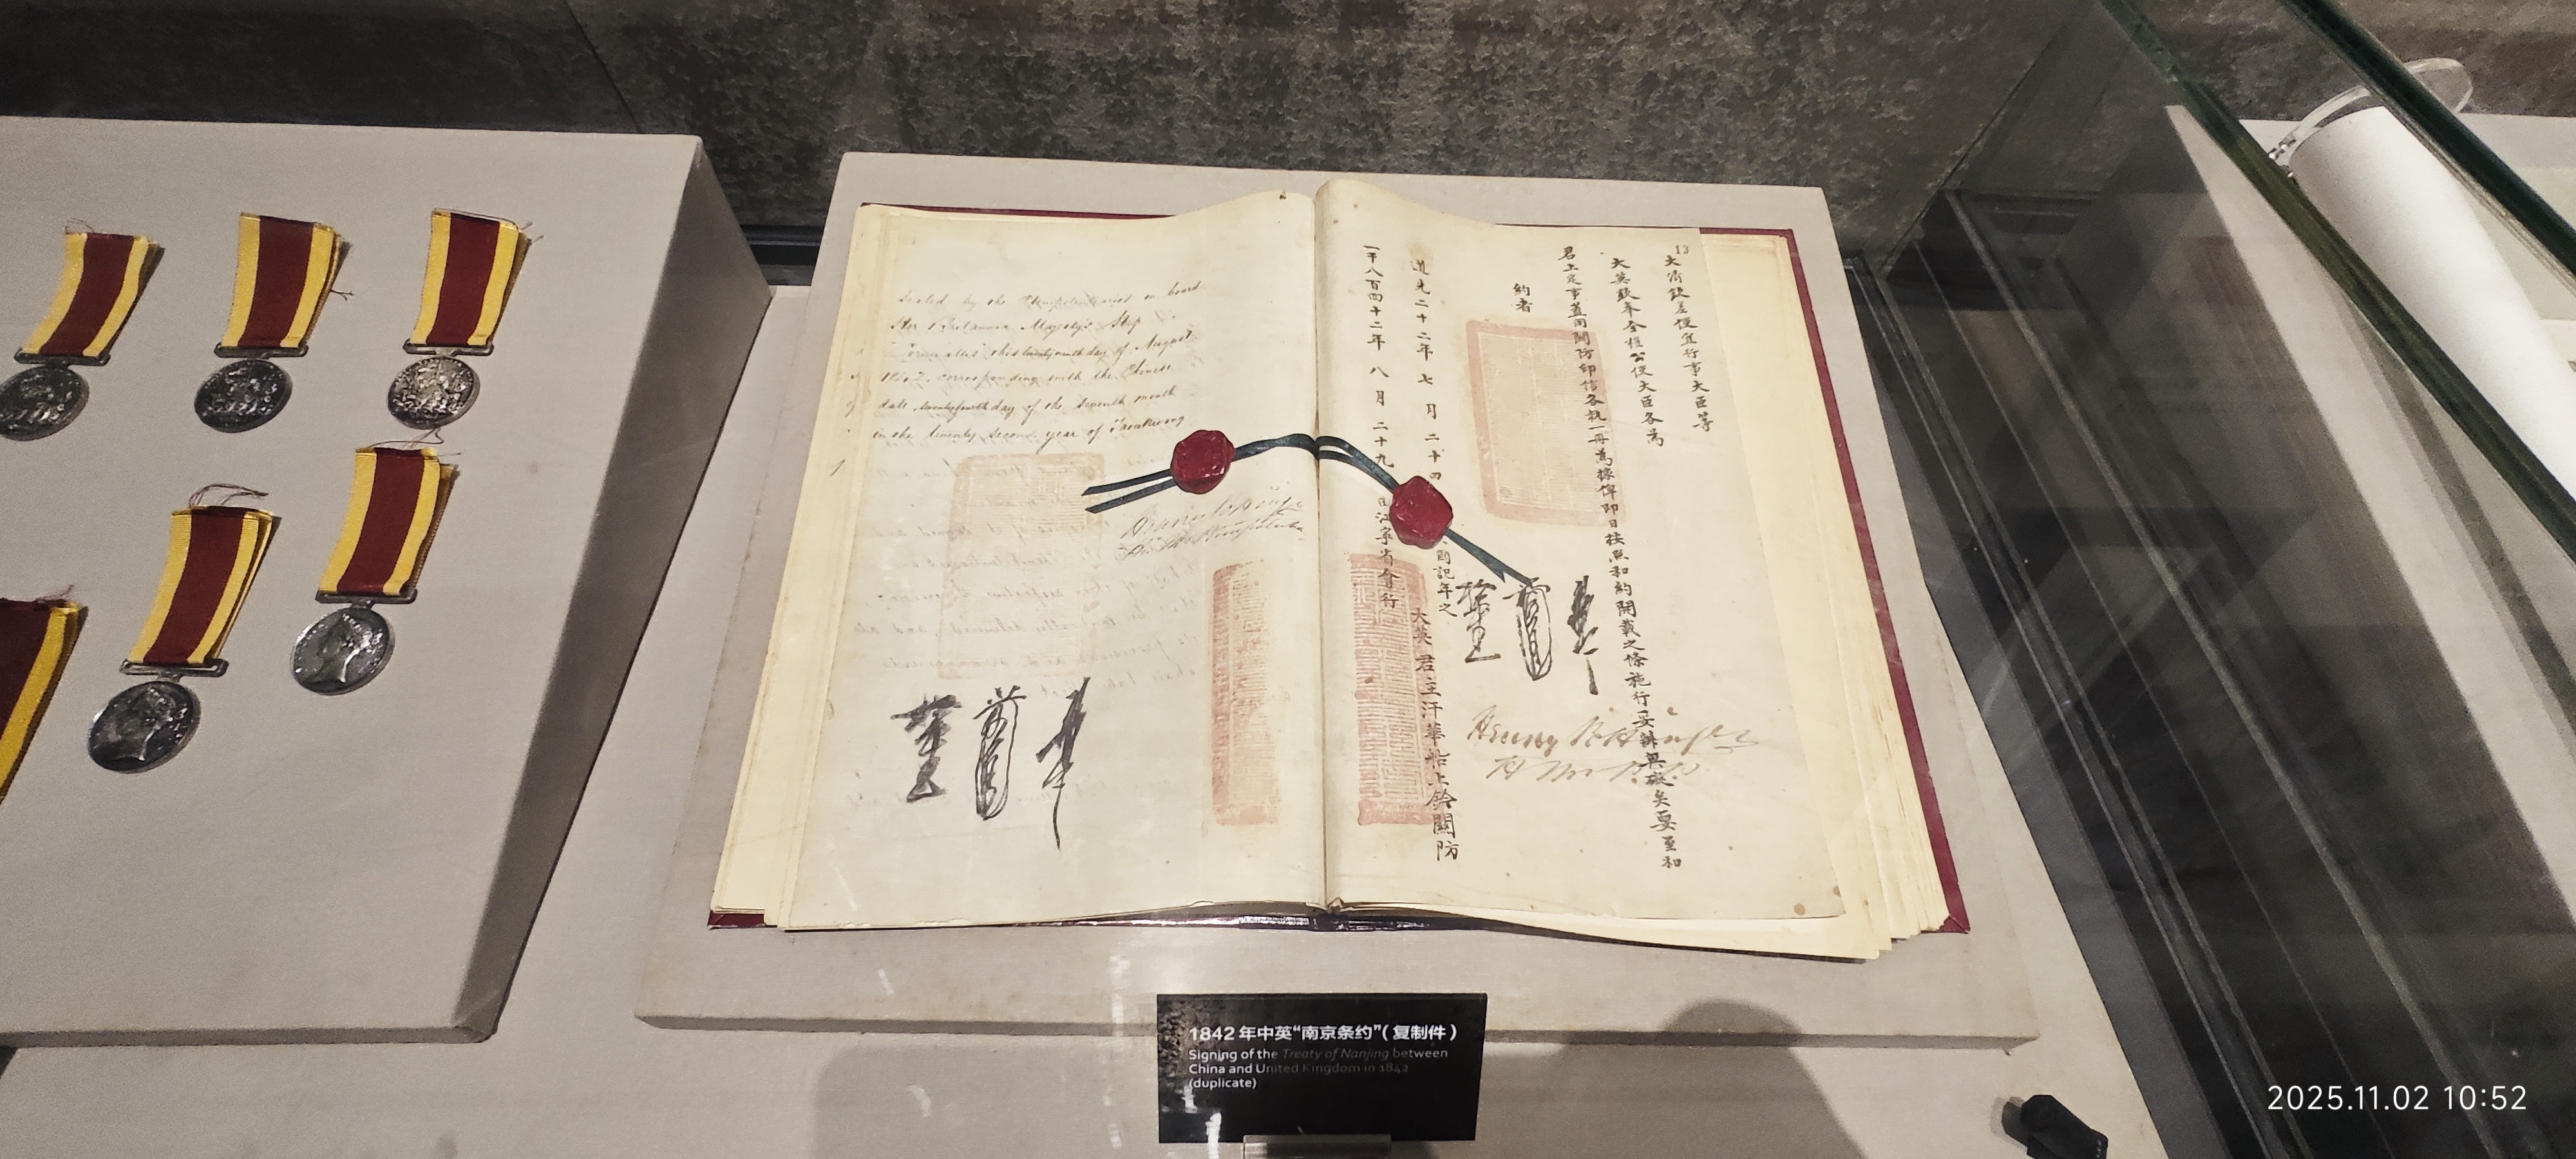 Sealed by the Plenipotentiaries on board
Her Britannic Majesty's Ship
Cornwallis this twenty ninth day of August
1842, corresponding with the Chinese
date, twenty fourth day of the seventh month
in the twenty second year of Taoukwang
Henry Pottinger
13
大清欽差便宜行事大臣等
大英欽奉全權公使大臣各為
君上定事蓋用關防印信各執一冊為據俾即日按照和約開載之條施行妥辦無礙矣要至和
約者
道光二十二年七月二十四
記年之
大英君主汗華船上鈐關防
一千八百四十二年八月二十九
由江寧省會行
Henry Pottinger
1842年中英“南京条约”(复制件)
Signing of the Treaty of Nanjing between
China and United Kingdom in 1842
(duplicate)
2025.11.02 10:52